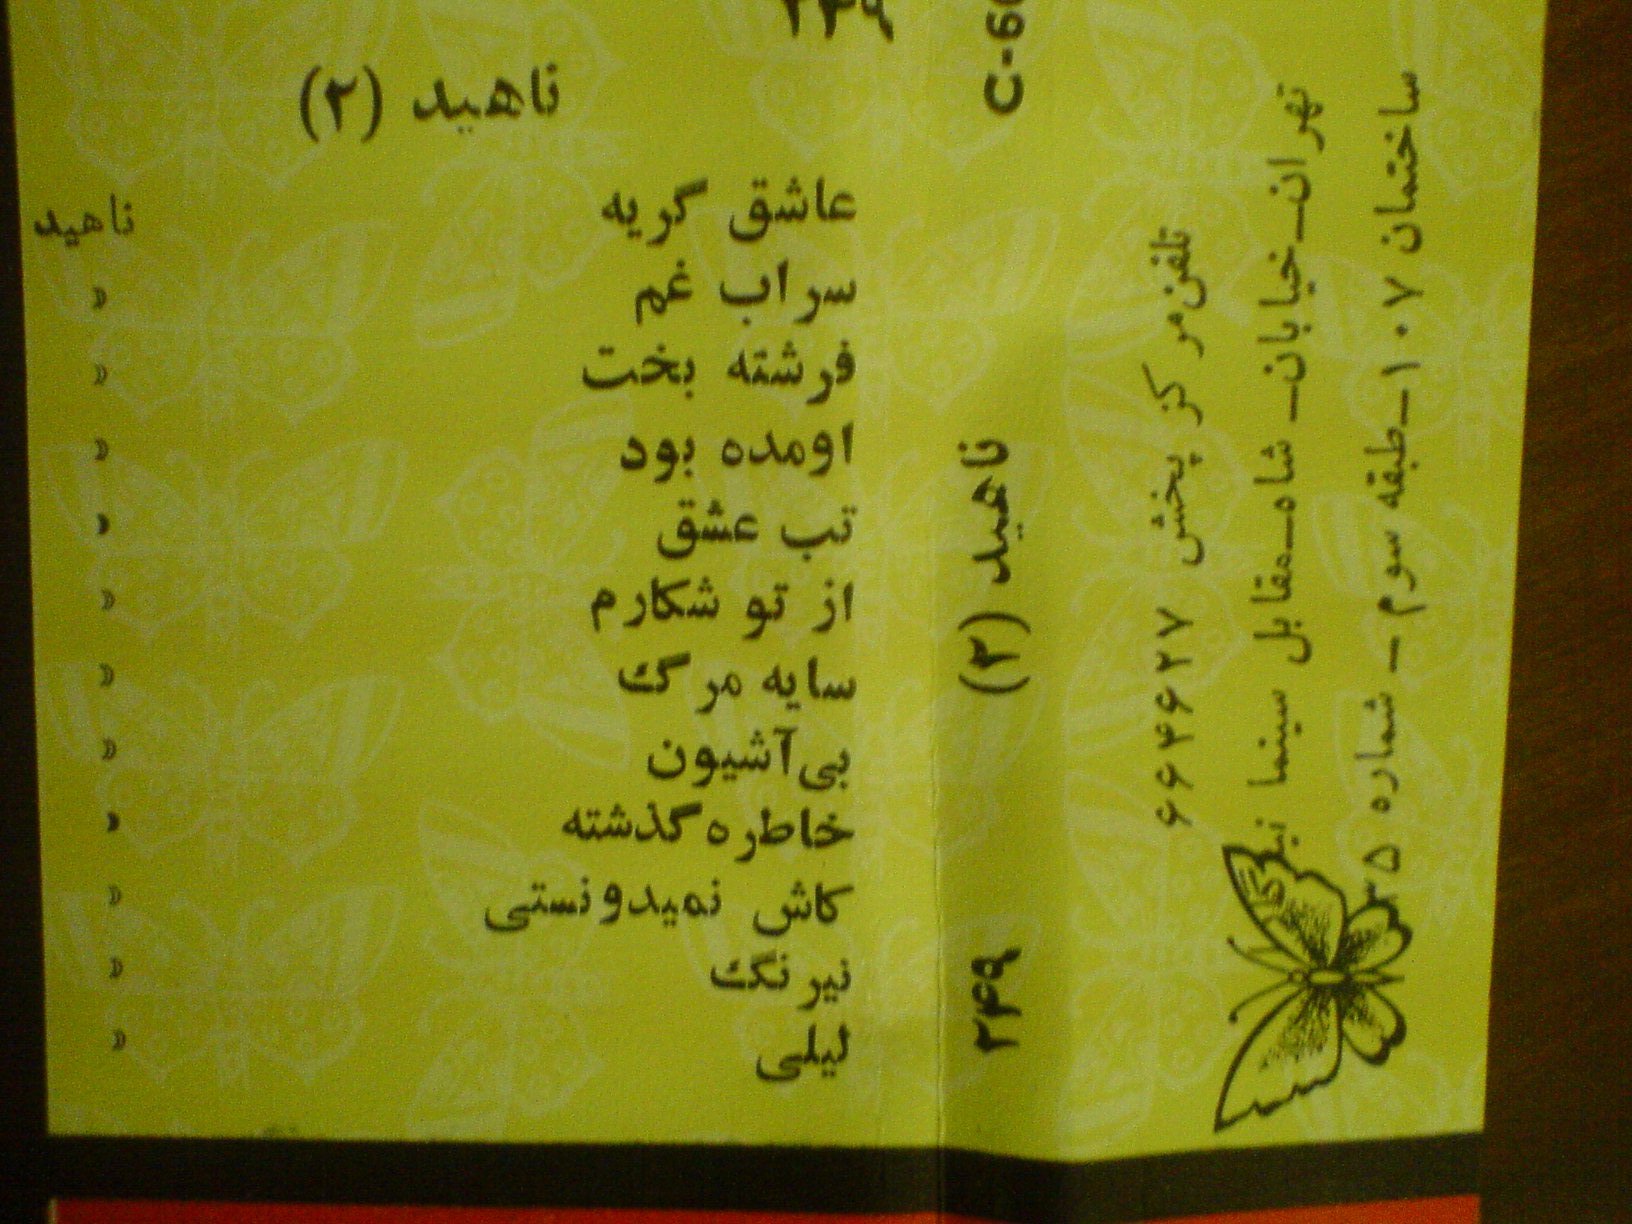 ۲۴۹
ناهید (۲)
عاشق گریه ناهید
سراب غم »
فرشته بخت »
اومده بود »
تب عشق »
از تو شکارم »
سایه مرگ »
بی‌آشیون »
خاطره گذشته »
کاش نمیدونستی »
نیرنگ »
لیلی »
C-60
ناهید (۲)
۲۴۹
تلفن مرکز پخش ۶۶۴۶۲۷
تهران_خیابان_شاه_مقابل سینما
ساختمان ۱۰۷_طبقه سوم _ شماره ۳۵